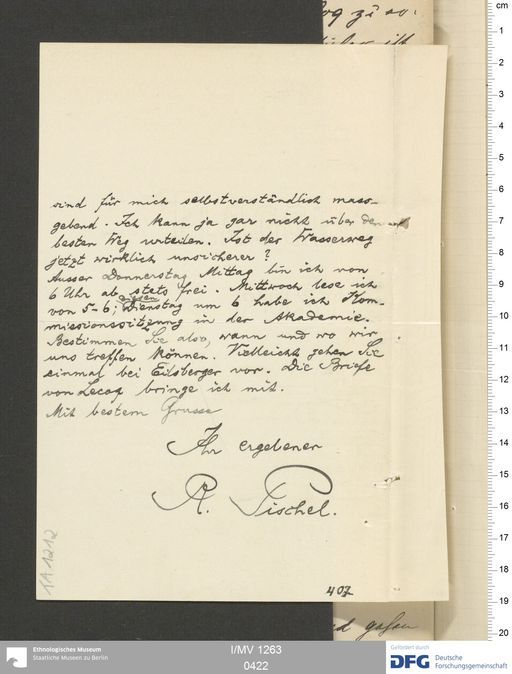 sind für mich selbstverständlich mass-
gebend. Ich kann ja gar nicht über den
besten Weg urteilen. Ist der Wasserweg
jetzt wirklich unsicherer?
Ausser Donnerstag Mittag bin ich von
6 Uhr ab stets frei. Mittwoch lese ich
von 5-6; diesen Dienstag um 6 habe ich Kom-
missionssitzung in der Akademie.
Bestimmen Sie also, wann und wo wir
uns treffen können. Vielleicht gehen Sie
einmal bei Eilsberger vor. Die Briefe
von Lecoq bringe ich mit.
Mit bestem Grusse
Ihr ergebener
R. Pischel.
407
1A 1212
cm
1
2
3
4
5
6
7
8
9
10
11
12
13
14
15
16
17
18
19
20
Ethnologisches Museum
Staatliche Museen zu Berlin
I/MV 1263
0422
Gefördert durch
DFG Deutsche
Forschungsgemeinschaft